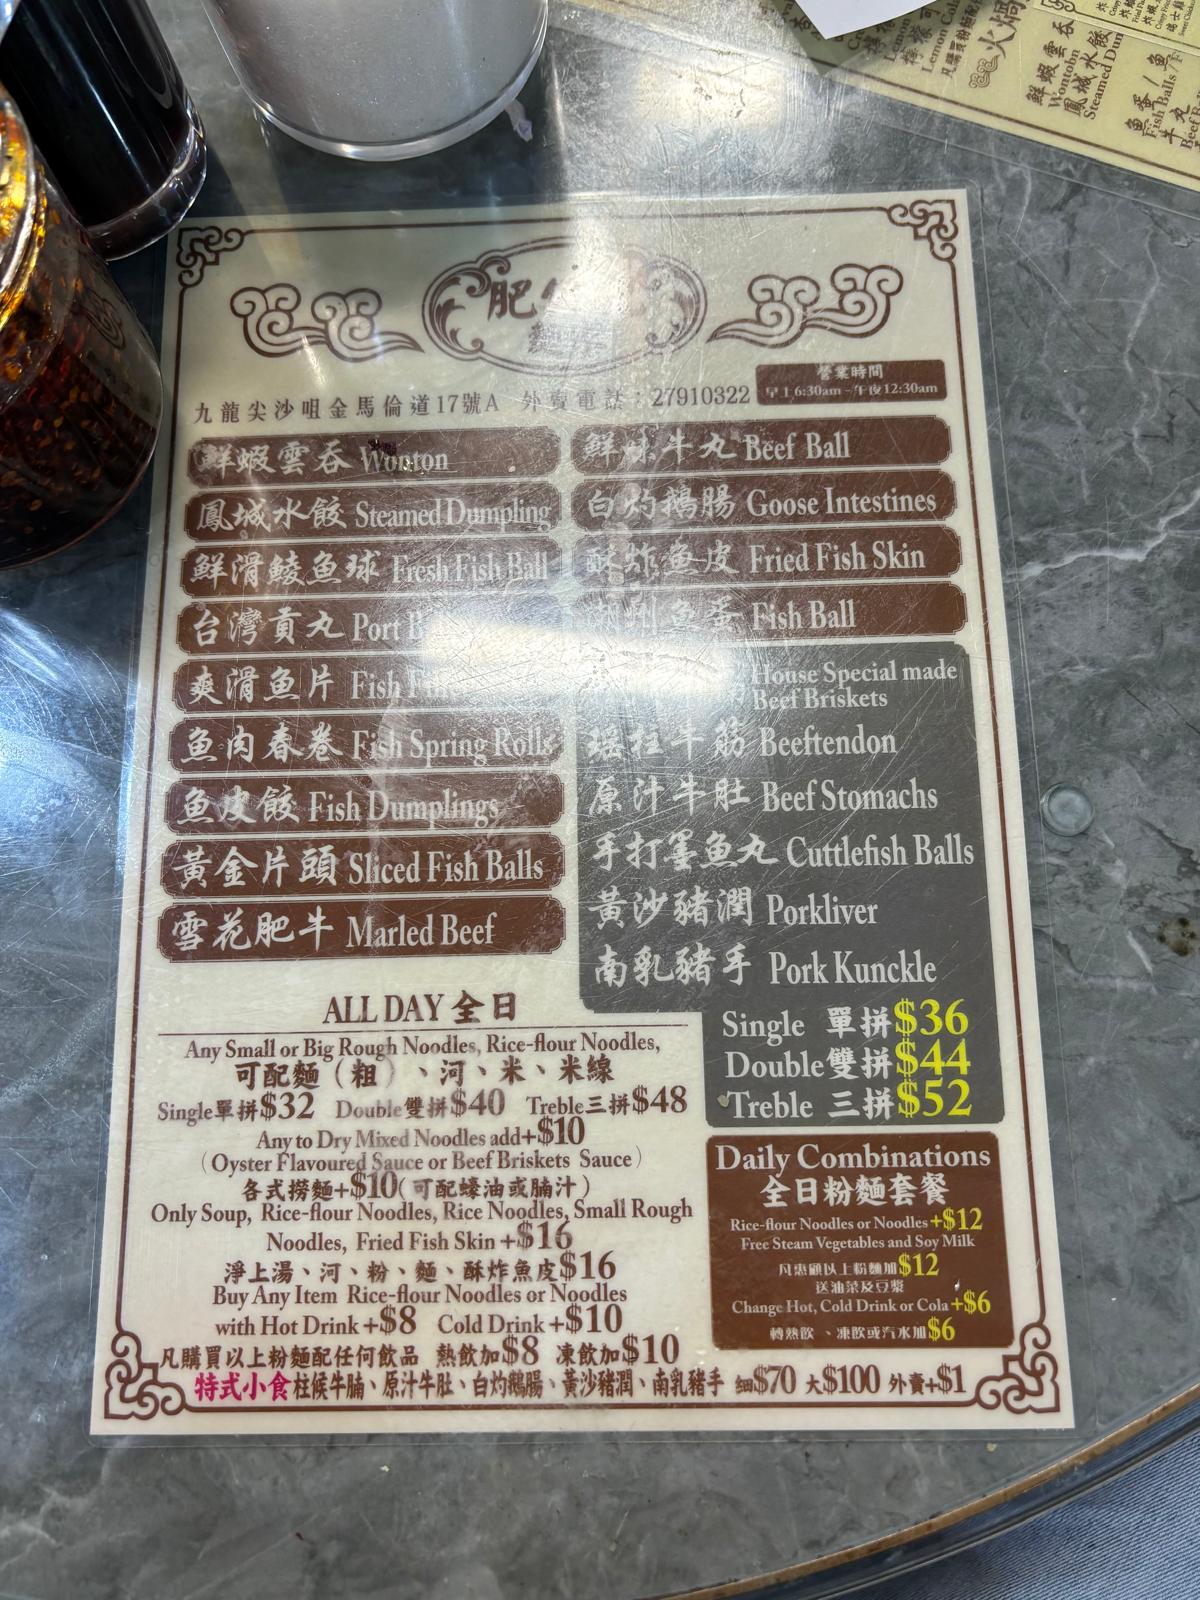 肥
九龍尖沙咀金馬倫道17號A 外賣電話：27910322
營業時間
早上6:30am - 午夜12:30am
鮮蝦雲吞 Wonton
鳳城水餃 Steamed Dumpling
鮮滑鯪魚球 Fresh Fish Ball
台灣貢丸 Port
爽滑魚片 Fish
魚肉春卷 Fish Spring Rolls
魚皮餃 Fish Dumplings
黃金片頭 Sliced Fish Balls
雪花肥牛 Marled Beef
鮮味牛丸 Beef Ball
白灼鵝腸 Goose Intestines
酥炸魚皮 Fried Fish Skin
潮州魚蛋 Fish Ball
House Special made
Beef Briskets
瑶柱牛筋 Beeftendon
原汁牛肚 Beef Stomachs
手打墨魚丸 Cuttlefish Balls
黃沙豬潤 Porkliver
南乳豬手 Pork Kunckle
Single 單拼$36
Double雙拼$44
Treble 三拼$52
ALL DAY 全日
Any Small or Big Rough Noodles, Rice-flour Noodles,
可配麵（粗）、河、米、米線
Single單拼$32 Double雙拼$40 Treble三拼$48
Any to Dry Mixed Noodles add+$10
（Oyster Flavoured Sauce or Beef Briskets Sauce）
各式撈麵+$10(可配蠔油或腩汁）
Only Soup, Rice-flour Noodles, Rice Noodles, Small Rough
Noodles, Fried Fish Skin +$16
淨上湯、河、粉、麵、酥炸魚皮$16
Buy Any Item Rice-flour Noodles or Noodles
with Hot Drink +$8 Cold Drink +$10
凡購買以上粉麵配任何飲品 熱飲加$8 凍飲加$10
特式小食柱候牛腩、原汁牛肚、白灼鵝腸、黃沙豬潤、南乳豬手 細$70 大$100 外賣+$1
Daily Combinations
全日粉麵套餐
Rice-flour Noodles or Noodles +$12
Free Steam Vegetables and Soy Milk
凡惠顧以上粉麵加$12
送油菜及豆漿
Change Hot, Cold Drink or Cola +$6
轉熱飲、凍飲或汽水加$6
鮮蝦雲吞
鳳城水餃
Steamed Dum
魚蛋 / 魚
Fish Balls / F
牛丸